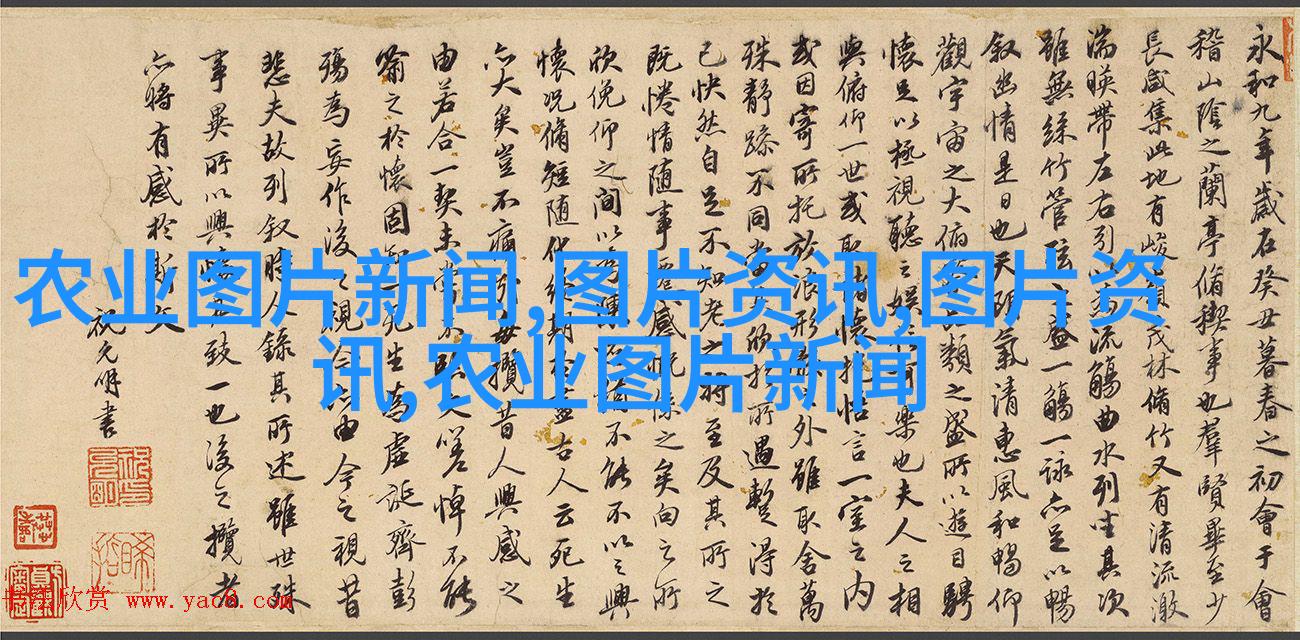 永和九年歲在癸丑暮春之初會于會
稽山陰之蘭亭脩稧事也羣賢畢至少
長咸集此地有峻領茂林脩竹又有清流激
湍暎帶左右引以為流觴曲水列坐其次
雖無絲竹管弦之盛一觴一詠亦足以暢
叙幽情是日也天朗氣清惠風和暢仰
觀宇宙之大俯察品類之盛所以遊目騁
懷足以極視聽之娛信可樂也夫人之相
與俯仰一世或取諸懷抱悟言一室之內
或因寄所托放浪形骸之外雖取舍萬
殊靜躁不同當其欣於所遇暫得於
己快然自足不知老之將至及其所之
既惓情随事遷感慨係之矣向之所
欣俛仰之間以為陳迹猶不能不以之興
懷況脩短随化終期於盡古人云死生
亦大矣豈不痛哉每攬昔人興感之
由若合一契未嘗不臨文嗟悼不能
喻之於懷固知一死生為虛誕齊彭
殤為妄作後之視今亦由今之視昔
悲夫故列叙時人錄其所述雖世殊
事異所以興懷其致一也後之攬者
亦將有感於斯文
祝允明書
农业图片新闻,图片资讯,图片资
讯,农业图片新闻
欣赏 www.yac8.com